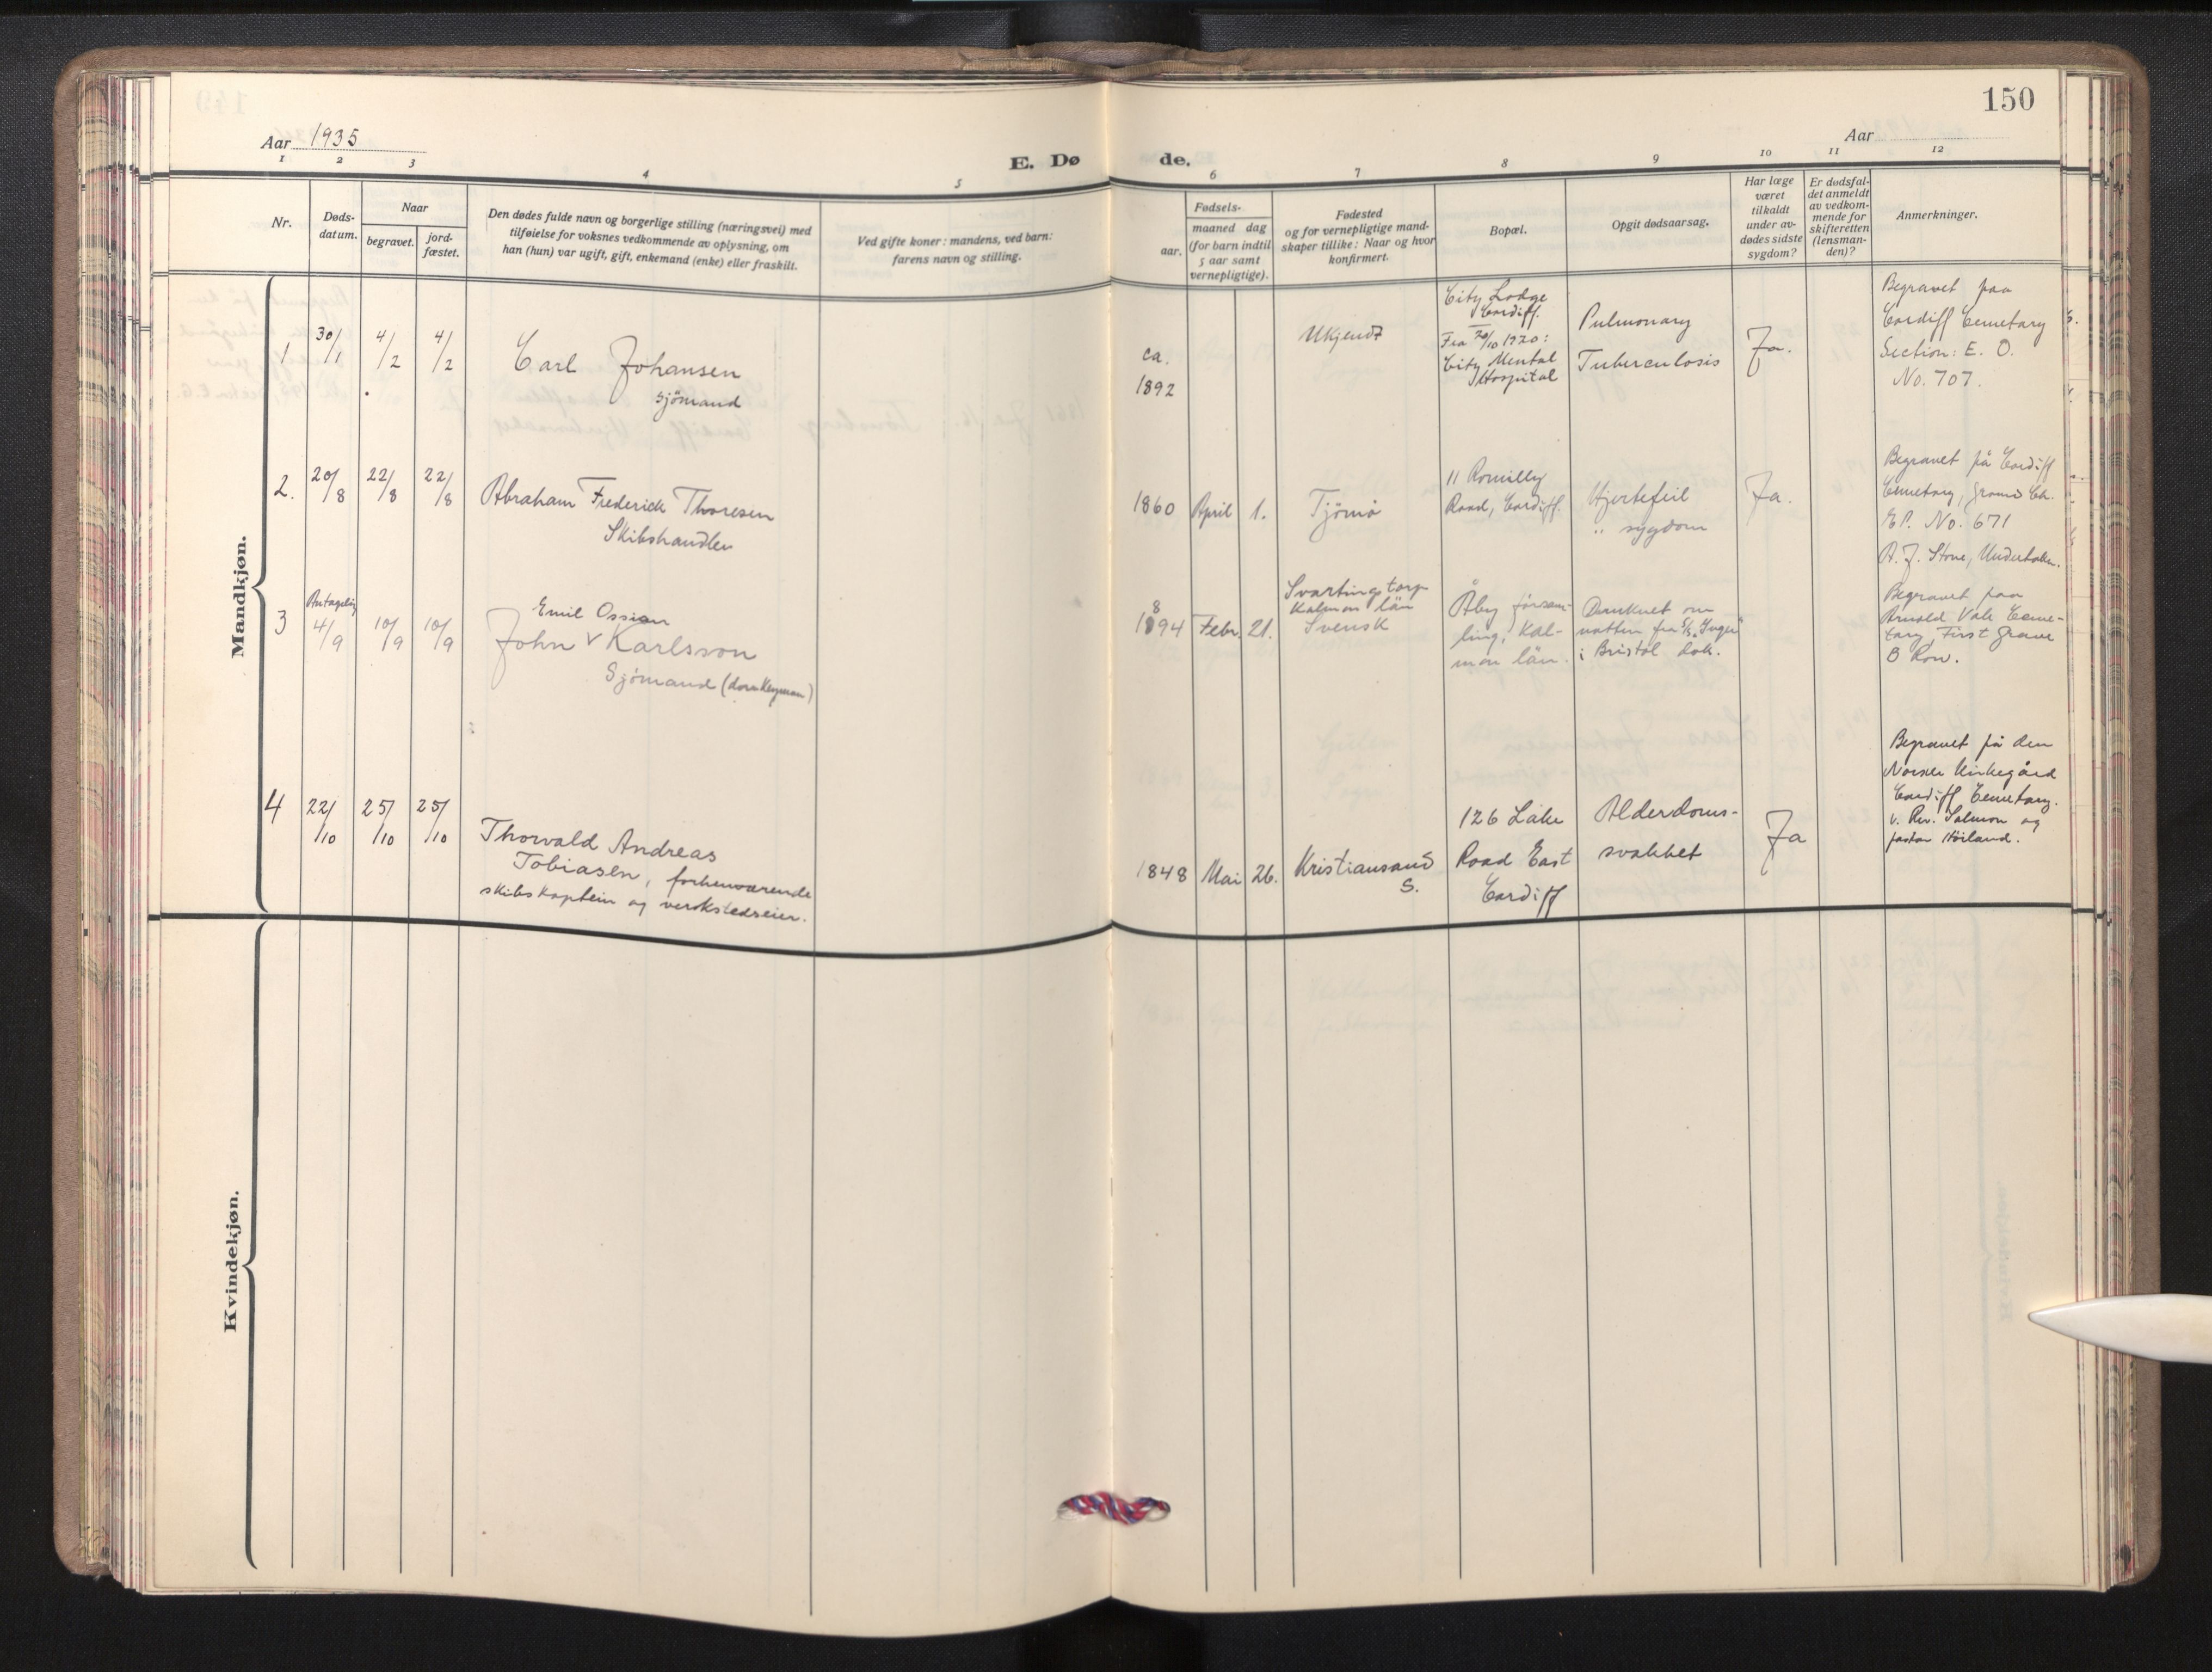 150
Aar 1935
Aar
E. Dø de.
1 2 3 4 5 6 7 8 9 10 11 12
Nr.
Døds-
datum.
Naar
begravet.
jord-
fæstet.
Den dødes fulde navn og borgerlige stilling (næringsvei) med
tilføielse for voksnes vedkommende av oplysning, om
han (hun) var ugift, gift, enkemand (enke) eller fraskilt.
Ved gifte koner: mandens, ved barn:
farens navn og stilling.
Fødsels-
aar.
maaned dag
(for barn indtil
5 aar samt
vernepligtige).
Fødested
og for vernepligtige mand-
skaper tillike: Naar og hvor
konfirmert.
Bopæl.
Opgit dødsaarsag.
Har læge
været
tilkaldt
under av-
dødes sidste
sygdom?
Er dødsfal-
det anmeldt
av vedkom-
mende for
skifteretten
(lensman-
den)?
Anmerkninger.
Mandkjøn.
1
30/1
4/2
4/2
Carl Johansen
sjömand
ca.
1892
Ukjendt
City Lodge
Cardiff.
Fra 20/10 1920:
City Mental
Hospital
Pulmonary
Tuberculosis
Ja.
Begravet paa
Cardiff Cemetary
Section: E. O.
No. 707.
2.
20/8
22/8
22/8
Abraham Frederick Thoresen
Skibshandler
1860 April 1.
Tjömö
11 Romilly
Road, Cardiff.
Hjertefeil
" sygdom
Ja.
Begravet på Cardiff
Cemetary, Ground Ch.
E P. No. 671
A. J. Stone, Undertaker.
3
Antagelig
4/9
10/9
10/9
Emil Ossian
John v Karlsson
Sjömand (donkeyman)
8
1894 Febr. 21.
Svartingstorp
Kalmar län
Svensk
Åby försam-
ling, Kal-
mar län.
Druknet om
natten fra S/S "Inger"
i Bristol dok.
Begravet paa
Arnold Vale Ceme-
tary, First Grave
B Row.
4
22/10
25/10
25/10
Thorvald Andreas
Tobiasen, forhenværende
skibskaptein og verkstedseier.
1848 Mai 26.
Kristiansand
S.
126 Lake
Road East
Cardiff
Alderdoms-
svakhet
Ja
Begravet på den
Norske Kirkegård
Cardiff Cemetary.
v. Rev. Salmon og
pastor Hörland.
Kvindekjøn.